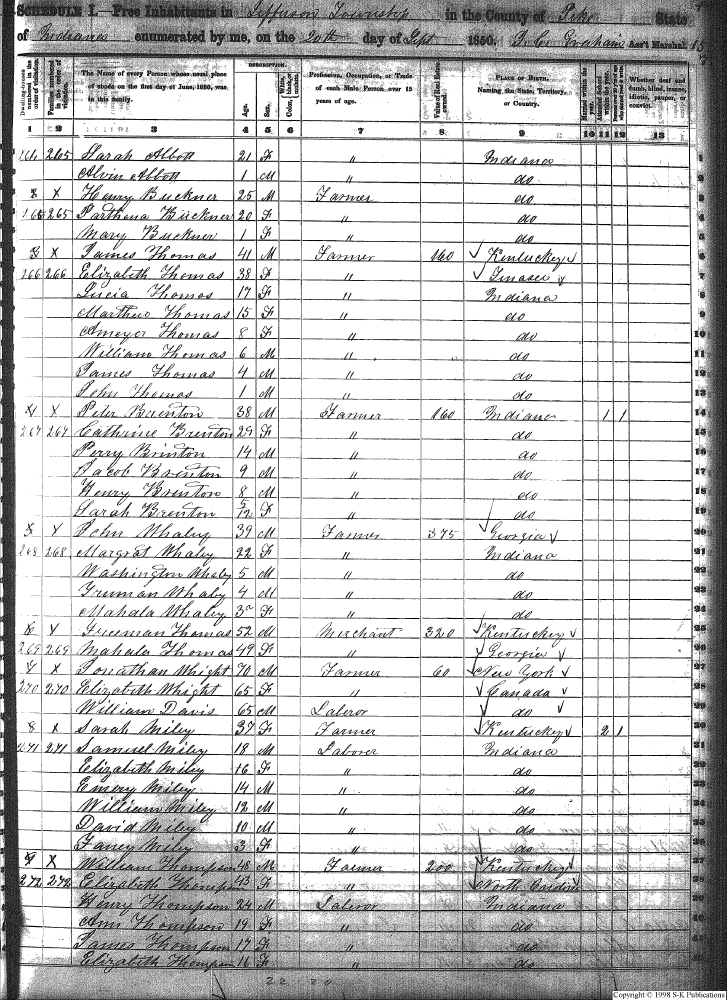 SCHEDULE I.—Free Inhabitants in Jefferson Township in the County of Pike State
of Indiana enumerated by me, on the 20th day of Sept 1850. Ass't Marshal.
Dwelling-houses numbered in the order of visitation.
Families numbered in the order of visitation.
The Name of every Person whose usual place of abode on the first day of June, 1850, was in this family.
DESCRIPTION.
Age.
Sex.
Color, White, black, or mulatto.
Profession, Occupation, or Trade of each Male Person over 15 years of age.
Value of Real Estate owned.
PLACE OF BIRTH. Naming the State, Territory, or Country.
Married within the year.
Attended School within the year.
Whether deaf and dumb, blind, insane, idiotic, pauper, or convict.
1 2 3 4 5 6 7 8 9 10 11 12 13
265 Sarah Abbott 21 F " Indiana
Alvin Abbott 1 M " do
x Henry Buckner 25 M Farmer do
265 Parthena Buckner 20 F " do
Mary Buckner 1 F " do
x James Thomas 41 M Farmer 160 Kentucky
266 266 Elizabeth Thomas 38 F " Tenasee
Lucia Thomas 17 F " Indiana
Marthew Thomas 15 F " do
Ameyer Thomas 8 F " do
William Thomas 6 M " do
James Thomas 4 M " do
John Thomas 1 M " do
x x Peter Brenton 38 M Farmer 160 Indiana 1 1
267 267 Catharine Brenton 29 F " do
Perry Brinton 14 M " do
Jacob Brenton 9 M " do
Henry Brenton 8 M " do
Sarah Brenton F " do
x John Whaley 39 M Farmer 375 Georgia
268 268 Margrat Whaley 22 F " Indiana
Washington Whaley 5 M " do
Truman Whaley 4 M " do
Mahala Whaley F " do
Freeman Thomas 52 M Merchant 320 Kentucky
269 269 Mahala Thomas 49 F " Georgia
x Jonathan Whight 70 M Farmer 60 New York
270 270 Elizabeth Whight 65 F " Canada
William Davis 65 M Laberor do
x Sarah Miley 37 F Farmer Kentucky 2 1
271 271 Samuel Miley 18 M Laborer Indiana
Elizabeth Miley 16 F " do
Emery Miley 14 M " do
William Miley 12 M " do
David Miley 10 M " do
Fancy Miley 3 F " do
x William Thompson 48 M Farmer 200 Kentucky
272 272 Elizabeth Thompson 43 F " North
Henry Thompson 24 M Laberor Indiana
Ann Thompson 19 F " do
James Thompson 17 F " do
Elizabeth Thompson 16 F " do
22 20
Copyright © 1998 S-K Publications